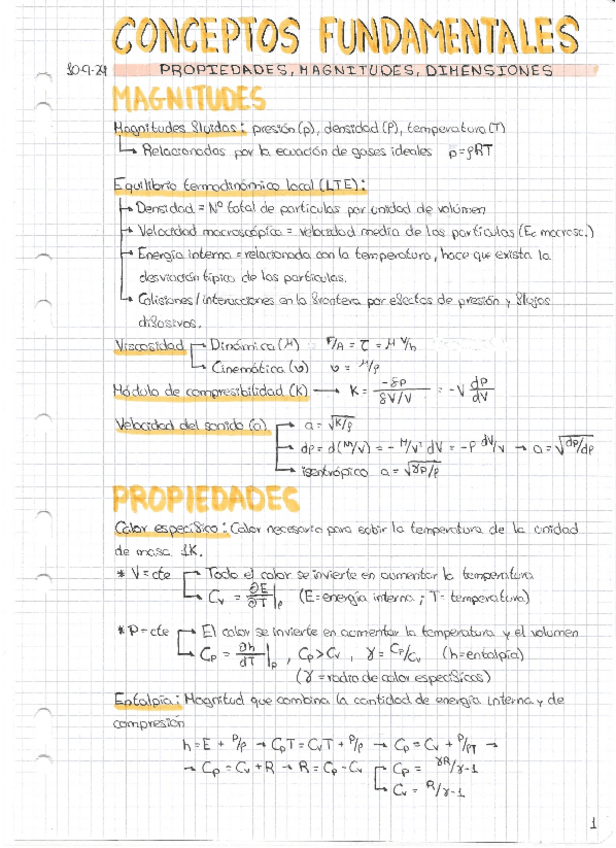 CONCEPTOS FUNDAMENTALES
30-9-24 PROPIEDADES, MAGNITUDES, DIMENSIONES
MAGNITUDES
Magnitudes fluidas: presión (p), densidad (ρ), temperatura (T)
↳ Relacionadas por la ecuación de gases ideales p=ρRT
Equilibrio termodinámico local (LTE):
→ Densidad = Nº total de partículas por unidad de volúmen
→ Velocidad macroscópica = velocidad media de las partículas (Ec macrosc.)
→ Energía interna = relacionada con la temperatura, hace que exista la
desviación típica de las partículas.
↳ Colisiones/interacciones en la frontera por efectos de presión y flujos
difusivos.
Viscosidad → Dinámica (μ) F/A = τ = μ V/h
↳ Cinemática (υ) υ = μ/ρ
Módulo de compresibilidad (K) → K = -δP / δV/V = -V dP/dV
Velocidad del sonido (a) → a = √K/ρ
→ dρ = d(M/V) = -M/V² dV = -ρ dV/V → a = √dp/dρ
↳ isentrópico a = √γP/ρ
PROPIEDADES
Calor específico: Calor necesario para subir la temperatura de la unidad
de masa 1K.
* V=cte → Todo el calor se invierte en aumentar la temperatura
↳ Cv = ∂E/∂T |ρ (E=energía interna ; T= temperatura)
* P=cte → El calor se invierte en aumentar la temperatura y el volumen
↳ Cp = ∂h/dT |p , Cp>Cv , γ = Cp/Cv (h=entalpía)
(γ = radio de calor específicos)
Entalpía: Magnitud que combina la cantidad de energía interna y de
compresión
h = E + P/ρ → CpT = CvT + P/ρ → Cp = Cv + P/ρT →
→ Cp = Cv + R → R = Cp - Cv → Cp = γR/γ-1
↳ Cv = R/γ-1
1